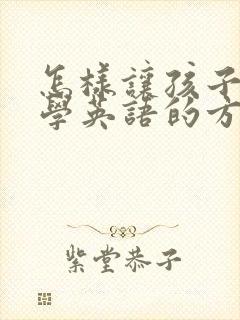 怎樣讓孩子
學英語的方
紫堂恭子